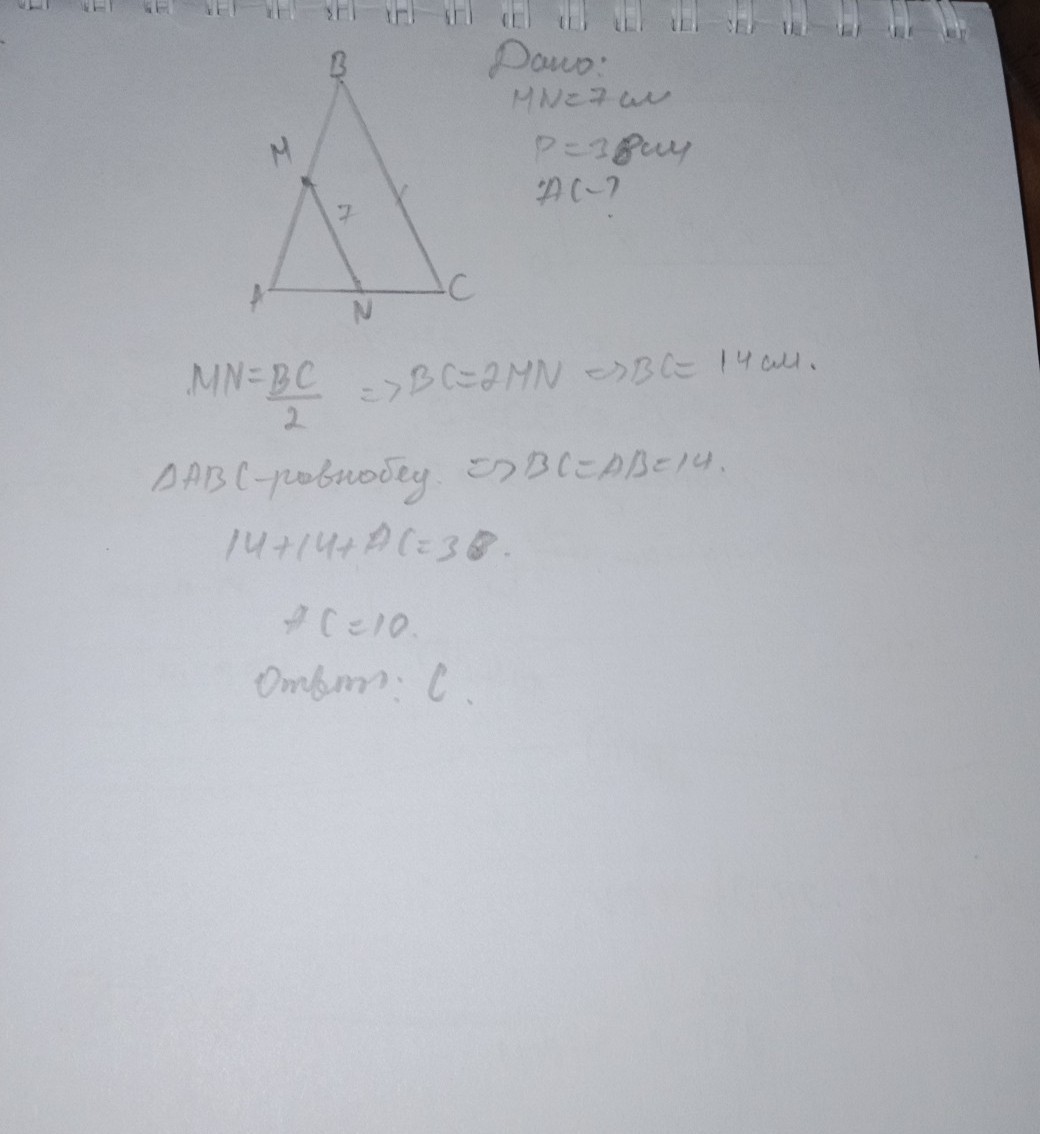 B
Дано:
MN=7 см
M
P=38см
AC-?
7
A
N
C
MN=BC/2 => BC=2MN => BC= 14 см.
ΔABC-равнобед. => BC=AB=14.
14+14+AC=38.
AC=10.
Ответ: C.